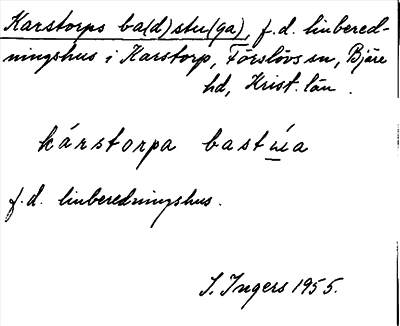 Karstorps ba(d)stu(ga), f.d. linbered-
ningshus i Karstorp, Förslövs sn, Bjäre
hd, Krist. län.
kárstorpa bastúa
f.d. linberedningshus.
S. Ingers 1955.